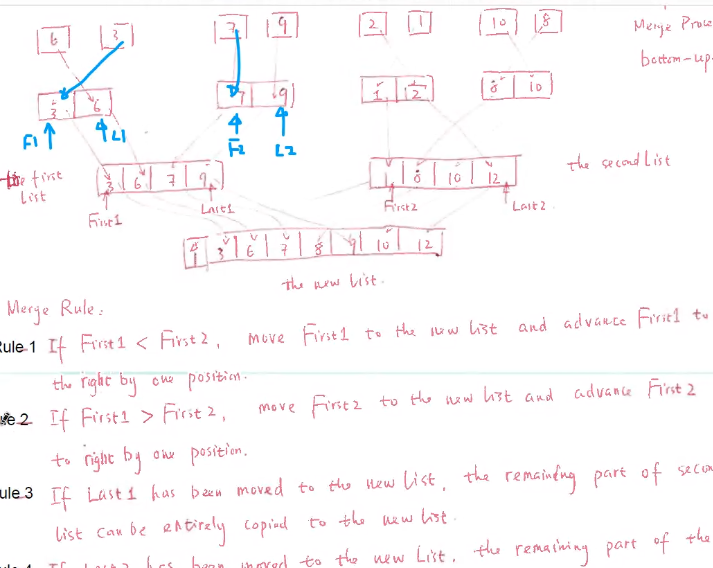 6 3 7 9 2 1 10 8
Merge Proce
bottom-up.
3 6 7 9 1 12 8 10
F1 L1 F2 L2
the first
List
3 6 7 9
1 8 10 12
the second List
First1 Last1 First2 Last2
1 3 6 7 8 9 10 12
the new List.
Merge Rule:
Rule 1 If First1 < First2, move First1 to the new list and advance First1 to
the right by one position.
2 If First1 > First2, move First2 to the new list and advance First2
to right by one position.
ule 3 If Last1 has been moved to the new List, the remaining part of secon
list can be entirely copied to the new list.
If Last2 has been moved to the new List, the remaining part of the